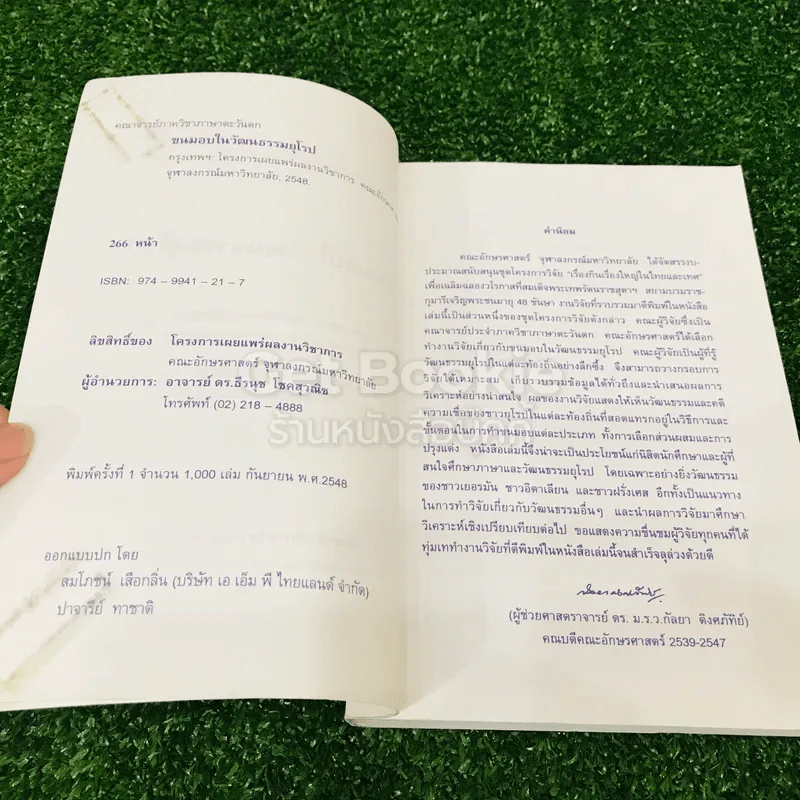 คณาจารย์ภาควิชาภาษาตะวันตก
ขนมอบในวัฒนธรรมยุโรป
กรุงเทพฯ: โครงการเผยแพร่ผลงานวิชาการ คณะอักษรศาสตร์
จุฬาลงกรณ์มหาวิทยาลัย, 2548.
266 หน้า
ISBN: 974 – 9941 – 21 – 7
ลิขสิทธิ์ของ โครงการเผยแพร่ผลงานวิชาการ
คณะอักษรศาสตร์ จุฬาลงกรณ์มหาวิทยาลัย
ผู้อำนวยการ: อาจารย์ ดร.ธีรนุช โชคสุวณิช
โทรศัพท์ (02) 218 – 4888
พิมพ์ครั้งที่ 1 จำนวน 1,000 เล่ม กันยายน พ.ศ.2548
ออกแบบปก โดย
สมโภชน์ เสือกลิ่น (บริษัท เอ เอ็ม พี ไทยแลนด์ จำกัด)
ปาจารีย์ ทาชาติ
คำนิยม
คณะอักษรศาสตร์ จุฬาลงกรณ์มหาวิทยาลัย ได้จัดสรรงบ-
ประมาณสนับสนุนชุดโครงการวิจัย "เรื่องกินเรื่องใหญ่ในไทยและเทศ"
เพื่อเฉลิมฉลองวโรกาสที่สมเด็จพระเทพรัตนราชสุดาฯ สยามบรมราช-
กุมารีเจริญพระชนมายุ 48 ชันษา งานวิจัยที่รวบรวมมาตีพิมพ์ในหนังสือ
เล่มนี้เป็นส่วนหนึ่งของชุดโครงการวิจัยดังกล่าว คณะผู้วิจัยซึ่งเป็น
คณาจารย์ประจำภาควิชาภาษาตะวันตก คณะอักษรศาสตร์ได้เลือก
ทำงานวิจัยเกี่ยวกับขนมอบในวัฒนธรรมยุโรป คณะผู้วิจัยเป็นผู้ที่รู้
วัฒนธรรมยุโรปในแต่ละท้องถิ่นอย่างลึกซึ้ง จึงสามารถวางกรอบการ
วิจัยได้เหมาะสม เก็บรวบรวมข้อมูลได้ทั่วถึงและนำเสนอผลการ
วิเคราะห์อย่างน่าสนใจ ผลของงานวิจัยแสดงให้เห็นวัฒนธรรมและคติ
ความเชื่อของชาวยุโรปในแต่ละท้องถิ่นที่สอดแทรกอยู่ในวิธีการและ
ขั้นตอนในการทำขนมอบแต่ละประเภท ทั้งการเลือกส่วนผสมและการ
ปรุงแต่ง หนังสือเล่มนี้จึงน่าจะเป็นประโยชน์แก่นิสิตนักศึกษาและผู้ที่
สนใจศึกษาภาษาและวัฒนธรรมยุโรป โดยเฉพาะอย่างยิ่งวัฒนธรรม
ของชาวเยอรมัน ชาวอิตาเลียน และชาวฝรั่งเศส อีกทั้งเป็นแนวทาง
ในการทำวิจัยเกี่ยวกับวัฒนธรรมอื่นๆ และนำผลการวิจัยมาศึกษา
วิเคราะห์เชิงเปรียบเทียบต่อไป ขอแสดงความชื่นชมผู้วิจัยทุกคนที่ได้
ทุ่มเททำงานวิจัยที่ตีพิมพ์ในหนังสือเล่มนี้จนสำเร็จลุล่วงด้วยดี
(ผู้ช่วยศาสตราจารย์ ดร. ม.ร.ว.กัลยา ติงศภัทิย์)
คณบดีคณะอักษรศาสตร์ 2539-2547
Get Bookie
ร้านหนังสือบุ๊คกี้